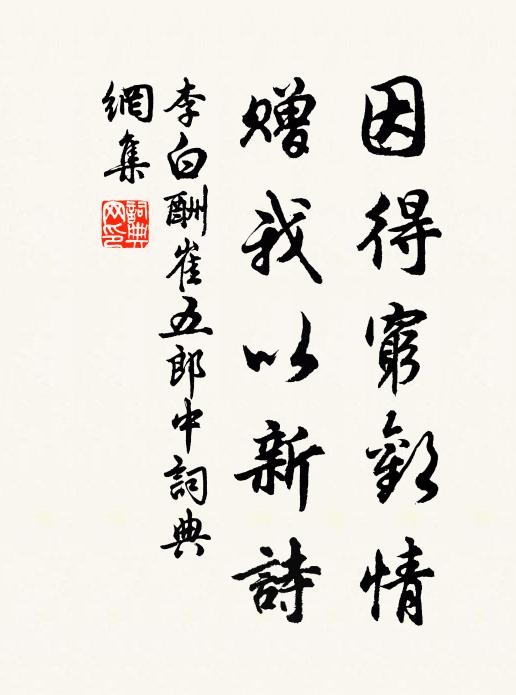 因得窮歡情
贈我以新詩
李白酬崔五郎中詞典
網集
詞典網印